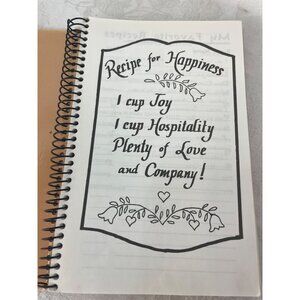 Recipe for Happiness
1 cup Joy
1 cup Hospitality
Plenty of Love
and Company!